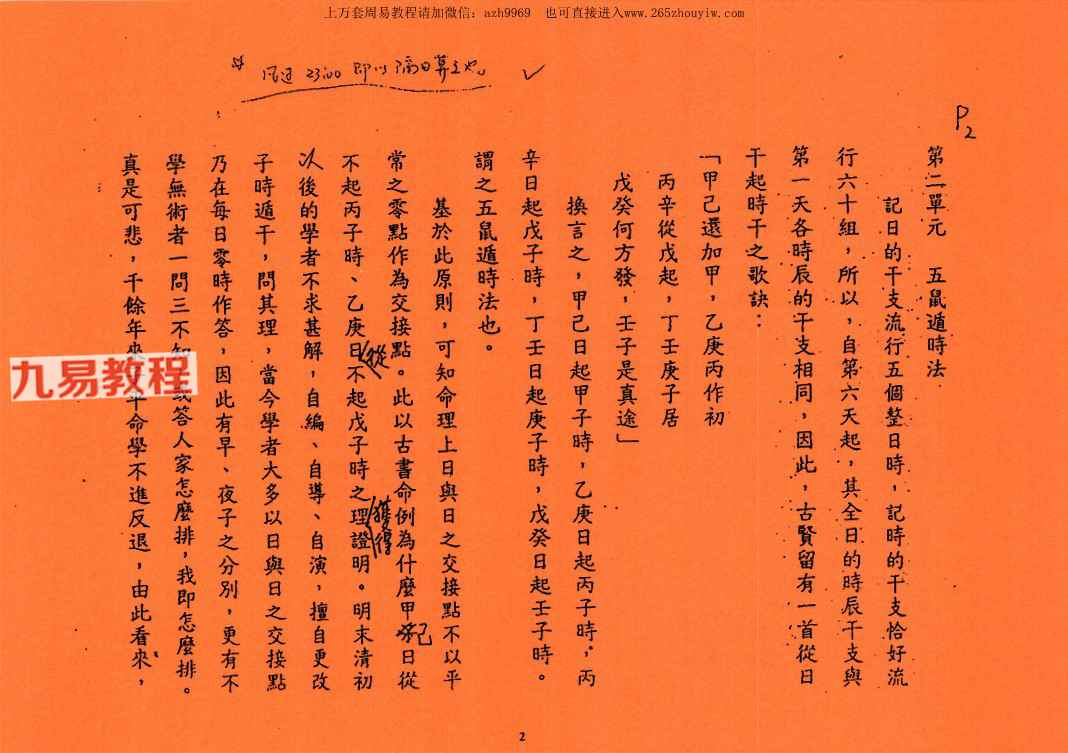 上万套周易教程请加微信：azh9969　也可直接进入www.265zhouyiw.com
23:00 即以隔日算之也。
P2
第二單元　五鼠遁時法
記日的干支流行五個整日時，記時的干支恰好流
行六十組，所以，自第六天起，其全日的時辰干支與
第一天各時辰的干支相同，因此，古賢留有一首從日
干起時干之歌訣：
「甲己還加甲，乙庚丙作初
丙辛從戊起，丁壬庚子居
戊癸何方發，壬子是真途」
換言之，甲己日起甲子時，乙庚日起丙子時，丙
辛日起戊子時，丁壬日起庚子時，戊癸日起壬子時。
謂之五鼠遁時法也。
基於此原則，可知命理上日與日之交接點不以平
常之零點作為交接點。此以古書命例為什麼甲己日從
不起丙子時、乙庚日從不起戊子時之理獲得證明。明末清初
以後的學者不求甚解，自編、自導、自演，擅自更改
子時遁干，問其理，當今學者大多以日與日之交接點
乃在每日零時作答，因此有早、夜子之分別，更有不
學無術者一問三不知或答人家怎麼排，我即怎麼排。
真是可悲，千餘年來命學不進反退，由此看來，
九易教程
2